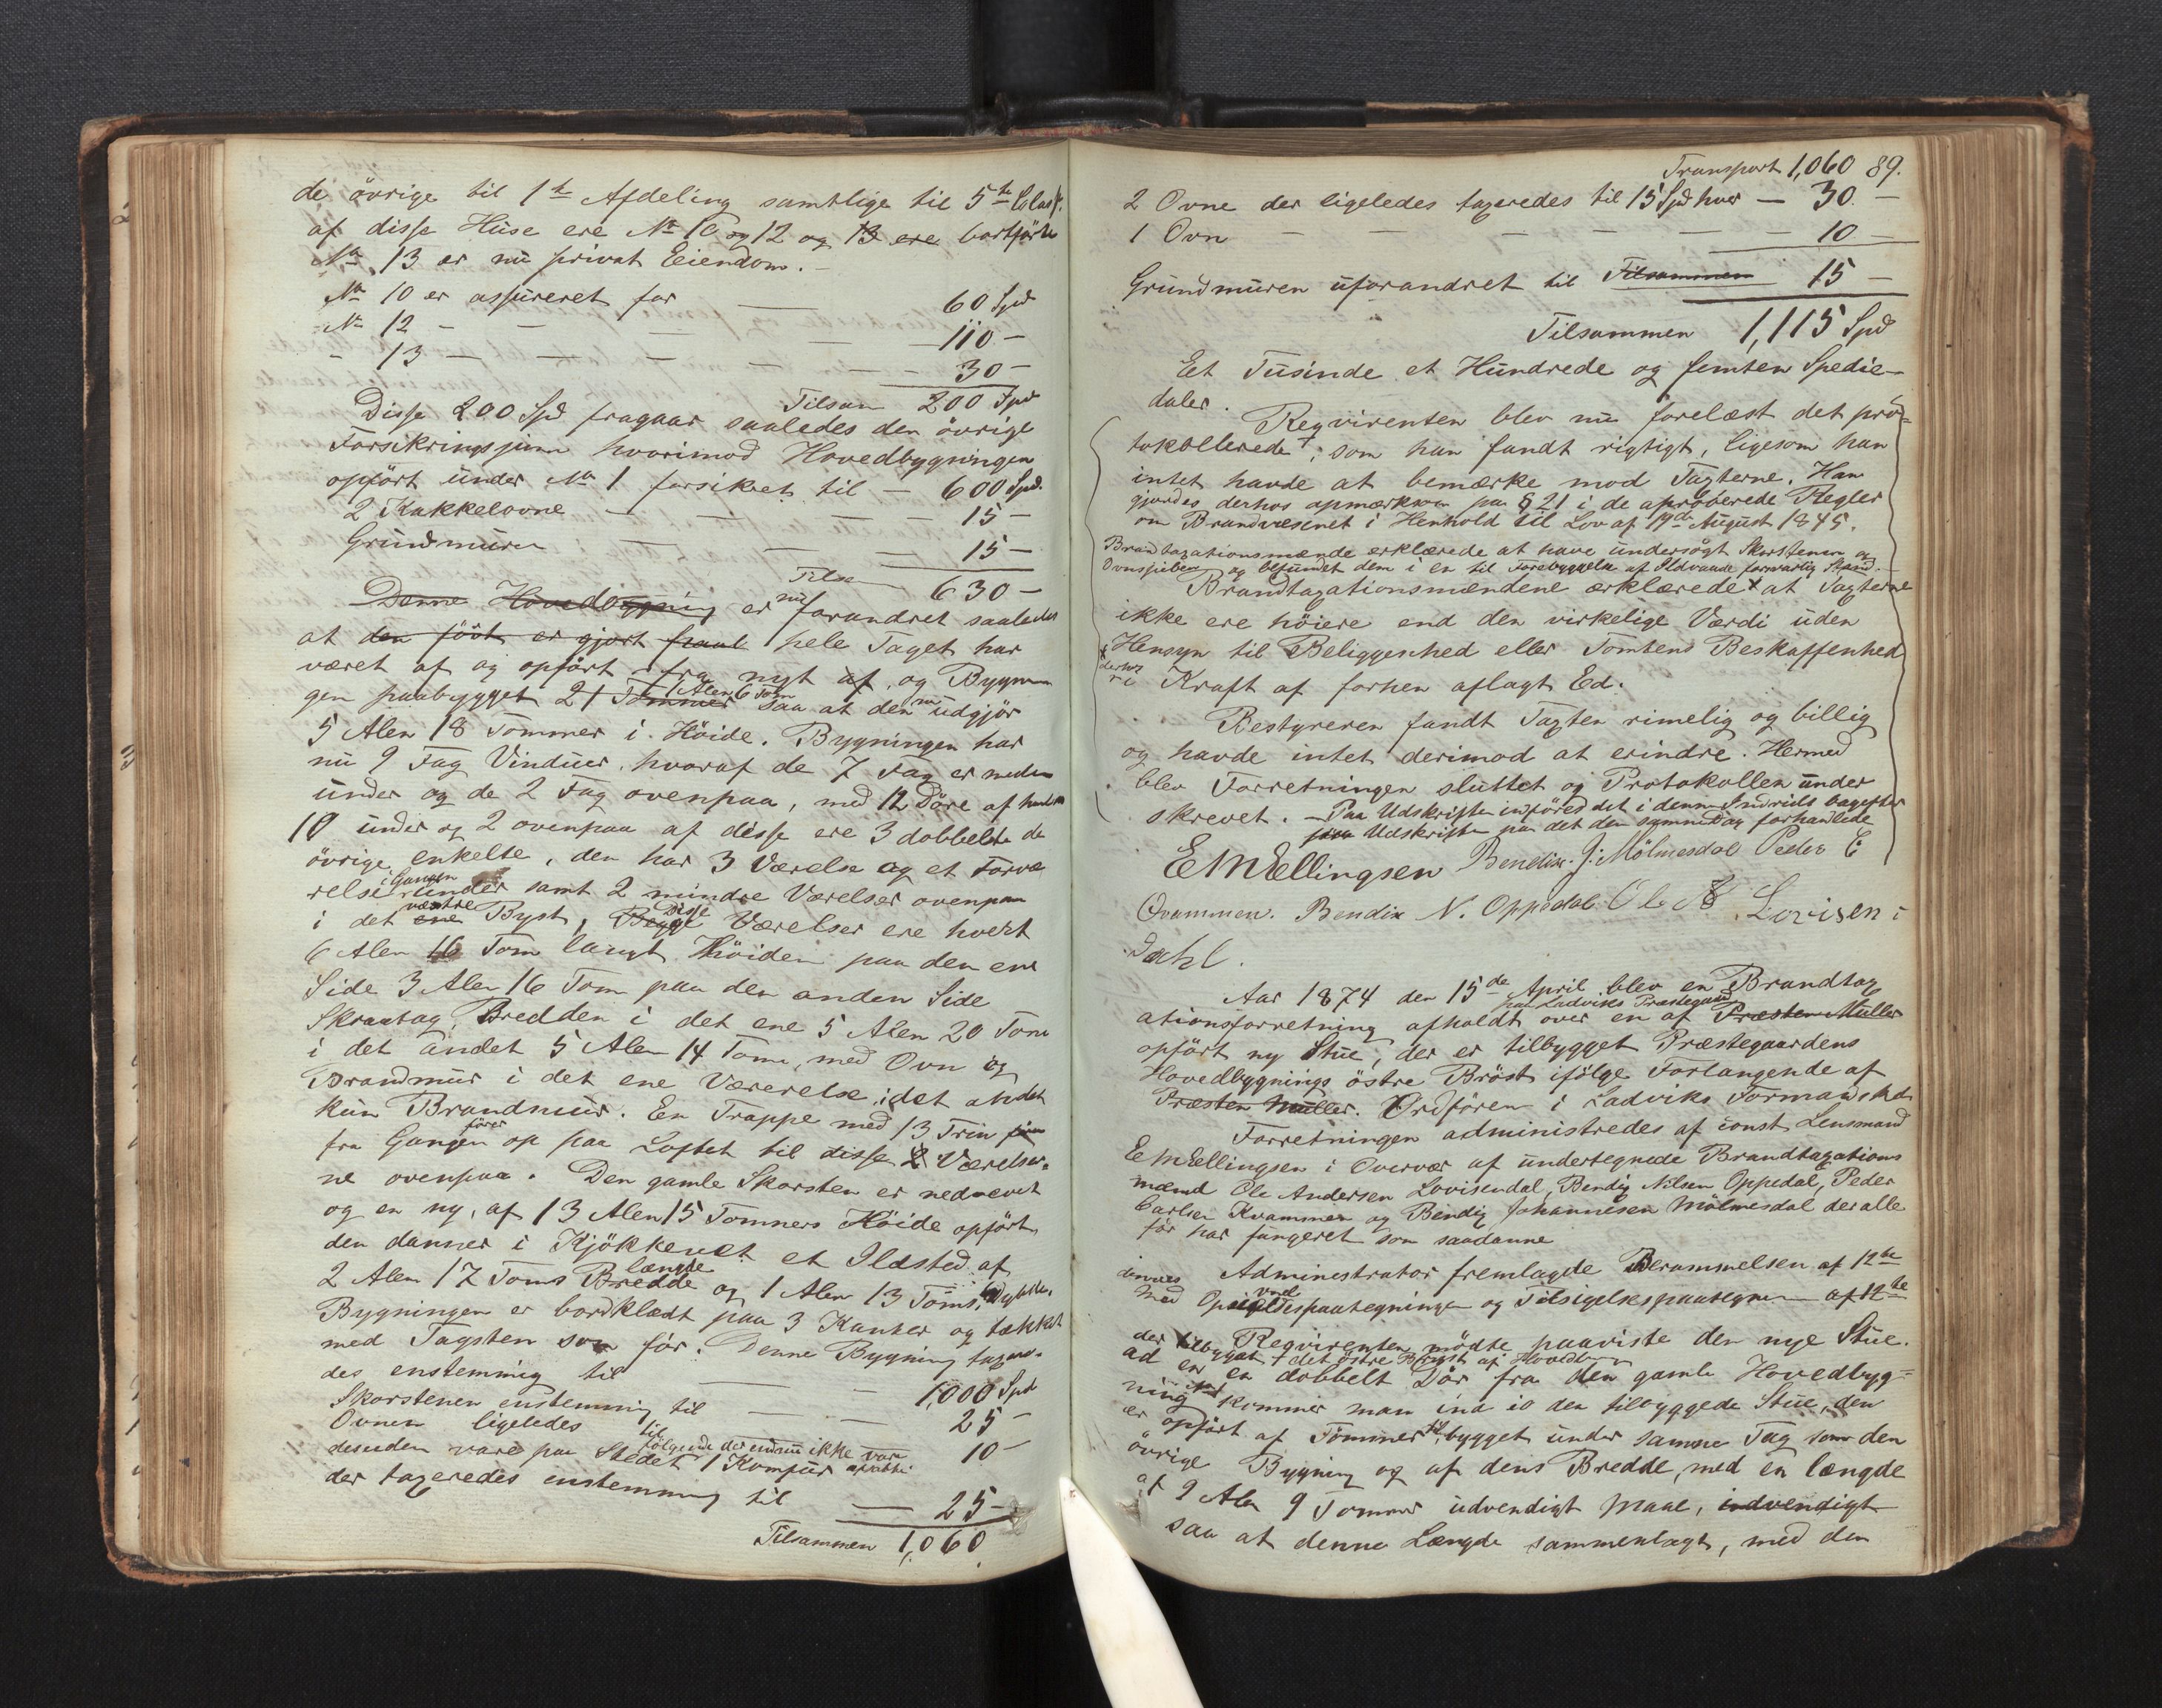 de övrige til 1ste Afdeling samtlige til 5te Class.
af disse Huse ere No 10 og 12 og 13 ere bortförte
No 13 er nu privat Eiendom. -
No 10 er assureret for — 60 Spd
No 12 - - - - 110 -
- 13 - - - - 30 -
Tilsam 200 Spd
Disse 200 Spd fragaar saaledes den övrige
Forsikringssum hvorimod Hovedbygningen
opfört under No 1 forsikret til - 600 Spd.
2 Kakkelovne - - - 15 -
Grundmuren - - - 15 -
Tilsa 630 -
Denne Hovedbygning er nu forandret saaledes
at den först er gjort hele Taget har
været af og opfört fra nyt af, og Bygnin
gen paabygget 21 Tommer 1 Alen 6 Tom saa at den nu udgjör
5 Alen 18 Tommer i Höide. Bygningen har
nu 9 Fag Vinduer, hvoraf de 7 Fag er neden
under og de 2 Fag ovenpaa, med 12 Döre af hvilke
10 under og 2 ovenpaa af disse ere 3 dobbelte de
övrige enkelte, den har 3 Værelse og et Forvæ
relse i Gangen under samt 2 mindre Værelser ovenpaa
i det ene væstre Byst, Begge Disse Værelser ere hvert
6 Alen 16 Tom langt Höiden paa den ene
Side 3 Alen 16 Tom paa den anden Side
Skraatag, Bredden i det ene 5 Alen 20 Tom
i det andet 5 Alen 14 Tom, med Ovn og
Brandmur i det ene Værerelse, i det andet
kun Brandmur. En Trappe med 13 Trin
fra Gangen förer op paa Loftet til disse 2 Værelser
ne ovenpaa. Den gamle Skorsten er nedrevet
og en ny, af 13 Alen 15 Tommers Höide opfört
den danner i Kjökkenet et Ildsted af
2 Alen 17 Toms Bredde længde og 1 Alen 13 Toms Dybde.
Bygningen er bordklædt paa 3 Kanter og tækket
med Tagsten som för. Denne Bygning taxere-
des enstemmig til — 1,000 Spd
Skorstenen enstemmig til — 25 -
Ovnen ligeledes til 10 -
desuden vare paa Stedet fölgende der endnu ikke var 1 Komfur
der taxeredes enstemmig til — 25 -
Tilsammen 1,060.
Transport 1,060 89.
2 Ovne der ligeledes taxeredes til 15 Spd hver — 30. -
1 Ovn - - - - - 10 -
Grundmuren uforandret til Tilsammen 15 -
Tilsammen 1,115 Spd
Eet Tusinde et Hundrede og femten Spedie-
daler.
Reqvirenten blev nu forelæst det pro-
tokollerede, som han fandt rigtigt, ligesom han
intet havde at bemærke mod Taxterne. Han
gjordes derhos opmærksom paa § 21 i de aproberede Regler
om Brandvæsenet i Henhold til Lov af 19de August 1845.
Brandtaxationsmænde erklærede at have undersögt Skorstenen og
Ovnspiben og befundet dem i en til Forebyggelse af Ildvaade forsvarlig Stand.
Brandtaxationsmændene erklærede x at Taxterne
ikke ere höiere end den virkelige Værdi uden
Hensyn til Beliggenhed eller Tomtens Beskaffenhed
x derhos i Kraft af forhen aflagt Ed.
Bestyreren fandt Taxten rimelig og billig
og havde intet derimod at erindre. Hermed
blev Forretningen sluttet og Protokollen under
skrevet. - Paa Udskriften indföres det i denne Indrids bagefter
Udskriften paa det den samme dag forhandlede
E M Ellingsen Bendix. J. Mölmesdal Peder C
Qvammen. Bendix N. Oppedal Ole A Lovisen i
Dahl.
Aar 1874 den 15de April blev en Brandtax
ationsforretning afholdt over en af Præsten Müller paa Ladviks Præstegaard
opfört ny Stue, der er tilbygget Præstegaardens
Hovedbygnings östre Bröst ifölge Forlangende af
Præsten Müller. Ordfören i Ladviks Formandskab
Forretningen administredes af const Lensmand
E M Ellingsen i Overvær af undertegnede Brandtaxations
mænd Ole Andersen Lovisendal, Bendix Nilsen Oppedal, Peder
Carlsen Kvammen og Bendix Johannesen Mölmesdal der alle
för har fungeret som saadanne
Administrator fremlagde Berammelsen af 12te
dennes
Med og Tilsigelsespaategnin af 12te
Reqvirenten mödte paaviste den nye Stue.
der tilbygget det östre Bryst af Hovedbyn
ad en dobbelt Dör fra den gamle Hovedbyg-
ning kommer man ind i den tilbyggede Stue, den
er opfört af Tömmer tilbygget under samme Tag som den
övrige Bygning og af dens Bredde, med en længde
af 9 Alen 9 Tommer udvendigt Maal, indvendigt
saa at denne Længde sammenlagt, med den